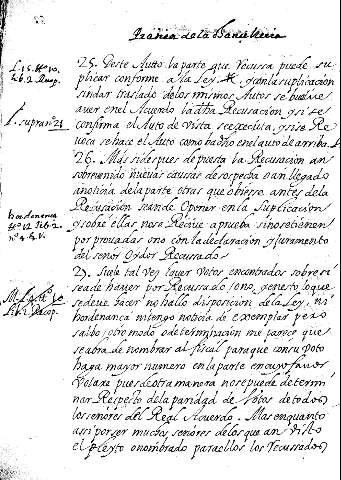 Practica de la Chancilleria
25. Deste Autto la parte que Recussa puede su
plicar conforme a la Ley, y con la suplicacion
sin dar traslado de los mismos Autos se buelve
a ver en el Acuerdo la dha Recusacion y si se
confirma el Auto de Vista se executa, y si se Re
voca se hace el Auto como ba dho en el auto de arriba.
L. supra nº 24
26. Mas si despues de puesta la Recusación an
sobrevenido nuevas caussas de sospecha o an llegado
a noticia de la parte otras que obiesse antes de la
Recusacion se an de Oponer en la Suplicacion
y sobre ellas no se Recive a prueba sino se tienen
por provadas o no con la declaración y juramento
del señor Oydor Recussado
27. Suele tal vez haver Votos encontrados sobre si
se a de haver por Recussado o no, y en esto lo que
se deve hacer no hallo disposicion de la Ley, ni
hordenanza ni tengo noticia de exemplar pero
salbo otro modo o determinacion me parece que
se abra de nombrar al fiscal para que con su Voto
haga mayor numero en la parte en cuyo favor
Votare pues de otra manera no se puede determi
nar Respecto de la paridad de Votos de todos
los señores del Real Acuerdo. Mas en quanto
assi por ser muchos señores de los que an visto
el pleyto o nombrado para ellos los Recussados